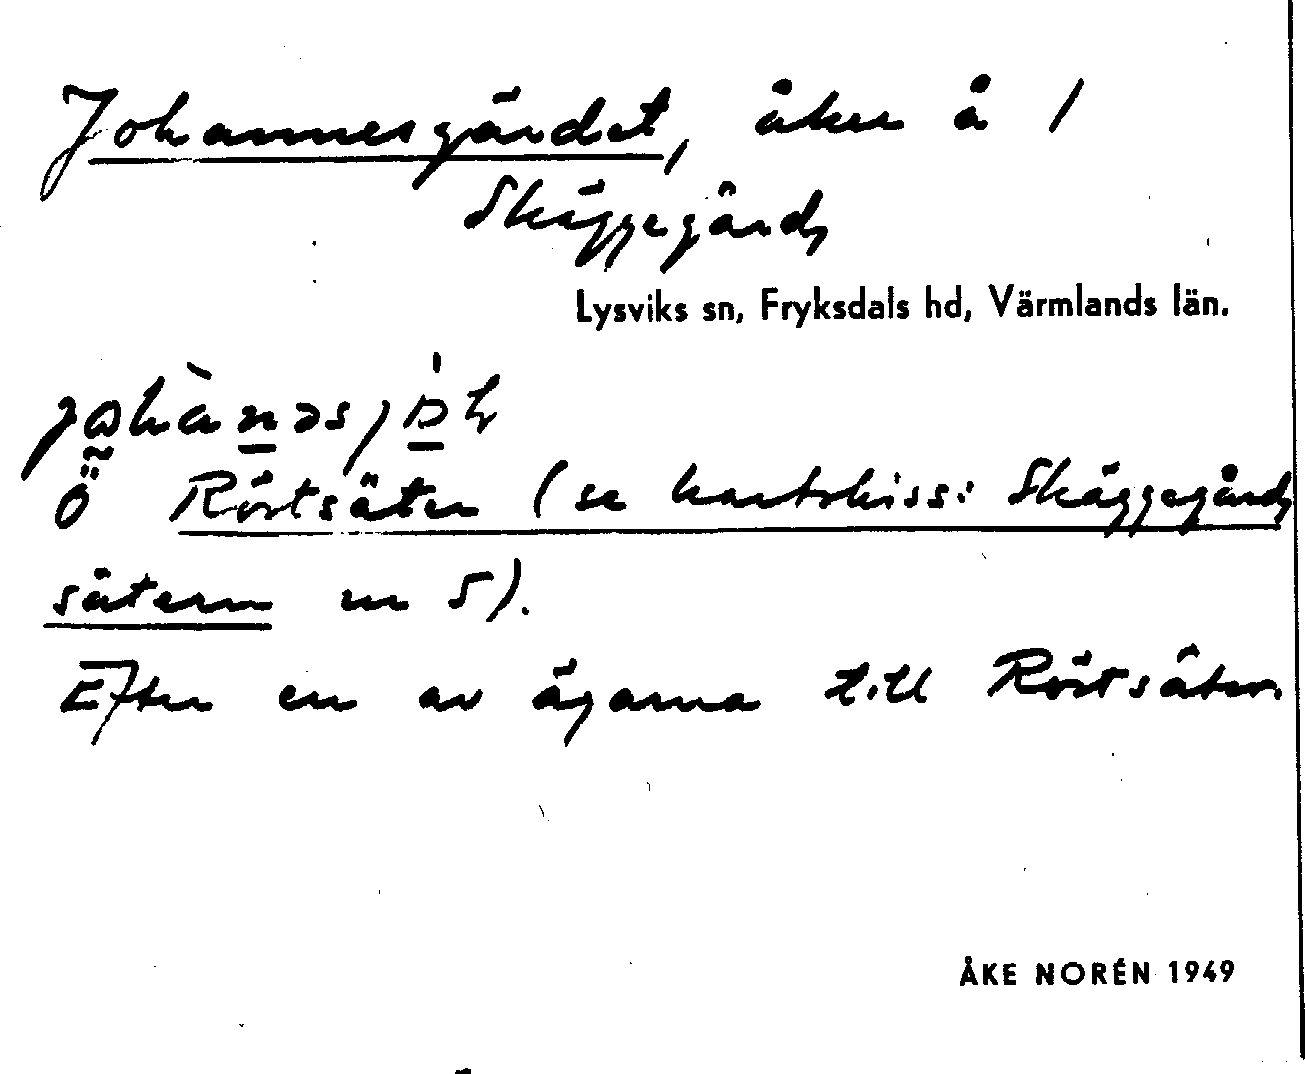 Johannesgärdet, åker å 1
Skäggegärds
Lysviks sn, Fryksdals hd, Värmlands län.
Ö Rörtsäter (se kartskiss: Skäggegårds
sätern nr 5).
Efter en av ägarna till Rörtsäter.
ÅKE NORÉN 1949